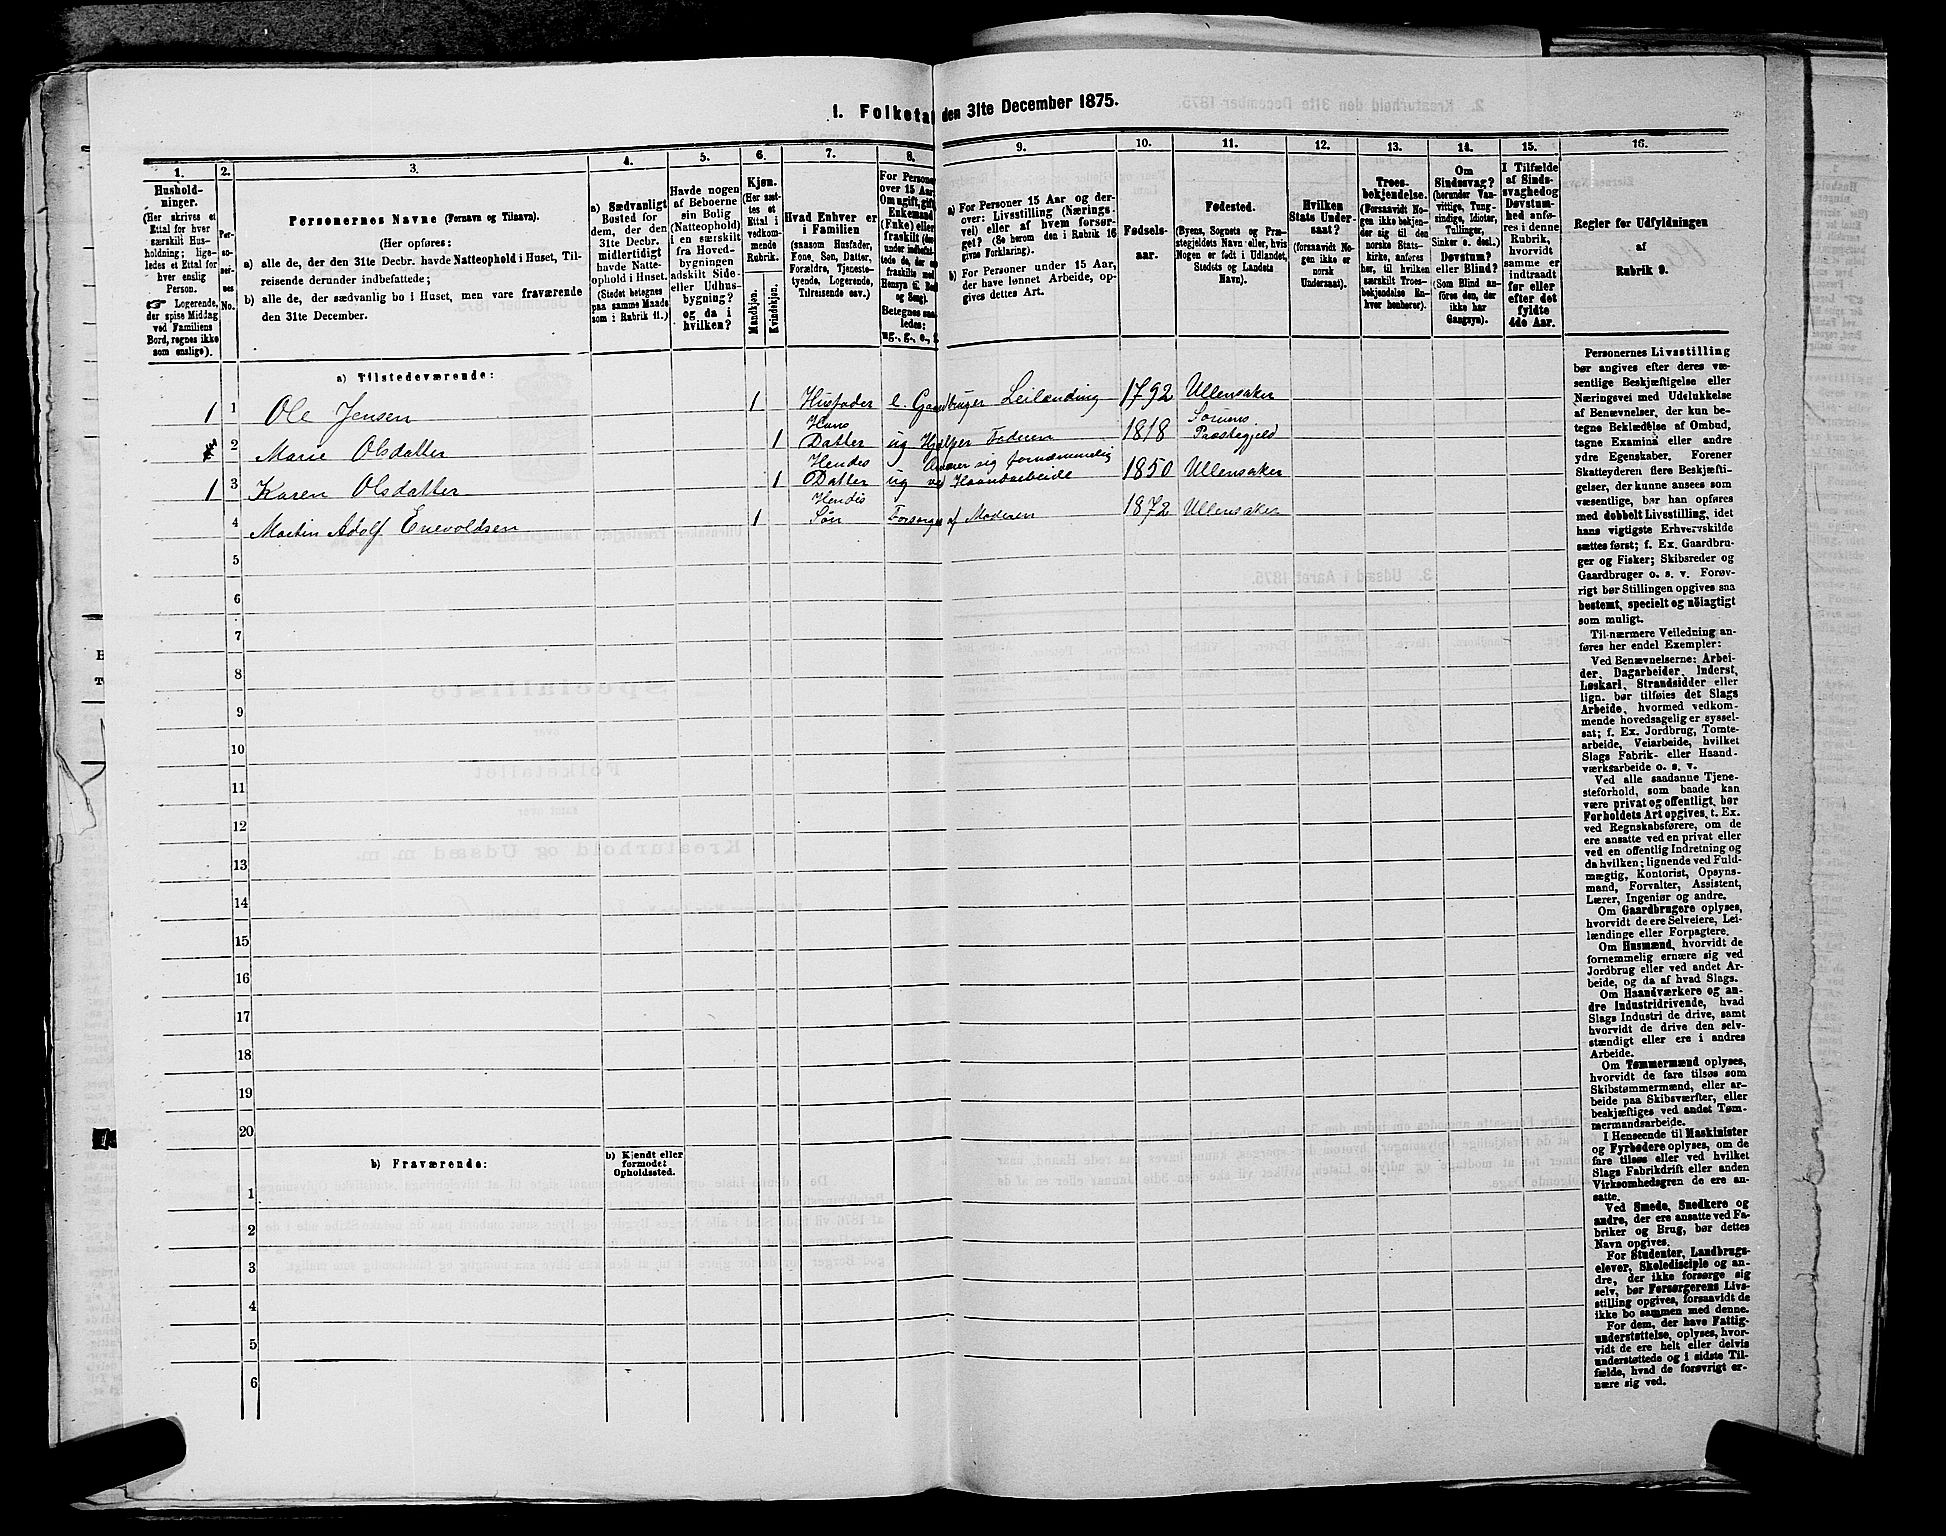 1. Folketal den 31te December 1875.
1.
2.
3.
4.
5.
6.
7.
8.
9.
10.
11.
12.
13.
14.
15.
16.
Hushold-
ninger.
(Her skrives et
Ettal for hver
særskilt Hus-
holdning; lige-
ledes et Ettal for
hver enslig
Person.
☞ Logerende,
der spise Middag
ved Familiens
Bord, regnes ikke
som enslige).
Per-
so-
ner-
nes
No.
Personernes Navne (Fornavn og Tilnavn).
(Her opføres:
a) alle de, der den 31te Decbr. havde Natteophold i Huset, Til-
reisende derunder indbefattede;
b) alle de, der sædvanlig bo i Huset, men vare fraværende
den 31te December.
a) Sædvanligt
Bosted for
dem, der den
31te Decbr.
midlertidigt
havde Natte-
ophold i Huset.
(Stedet betegnes
paa samme Maade
som i Rubrik 11.)
Havde nogen
af Beboerne
sin Bolig
(Natteophold)
i en særskilt
fra Hoved-
bygningen
adskilt Side-
eller Udhus-
bygning?
og da i
hvilken?
Kjøn.
(Her sæt-
tes et
Ettal i
vedkom-
mende
Rubrik.
Mandkjøn.
Kvindekjøn.
Hvad Enhver er
i Familien
(saasom Husfader,
Kone, Søn, Datter,
Forældre, Tjeneste-
tyende, Logerende,
Tilreisende osv.)
For Personer
over 15 Aar,
Om ugift, gift,
Enkemand
(Enke) eller
fraskilt
Betegnes saa-
ledes:
ug., g., e., f.
a) For Personer 15 Aar og der-
over: Livsstilling (Nærings-
vei) eller af hvem forsør-
get? (Se herom den i Rubrik 16
givne Forklaring).
b) For Personer under 15 Aar,
der have lønnet Arbeide, op-
gives dettes Art.
Fødsels-
aar.
Fødested.
(Byens, Sognets og Præ-
stegjeldets Navn eller, hvis
Nogen er født i Udlandet,
Stedets og Landets
Navn).
Hvilken
Stats Under-
saat?
(forsaavidt No-
gen ikke er
norsk
Undersaat).
Troes-
bekjendelse.
(Forsaavidt No-
gen ikke bekjen-
der sig til den
norske Stats-
kirke, anføres
her, til hvilken
særskilt Troes-
bekjendelse En-
hver henhører).
Om
Sindssvag?
(herunder Van-
vittige, Tung-
sindige, Idioter,
Tullinger,
Sinker o. desl.)
Døvstum?
eller Blind?
(Som Blind an-
føres den, der
ikke har
Gangsyn).
I Tilfælde
af Sinds-
svaghed og
Døvstum-
hed anfø-
res i denne
Rubrik,
hvorvidt
samme er
indtraadt
før eller
efter det
fyldte
4de Aar.
Regler for Udfyldningen
af
Rubrik 9.
a) Tilstedeværende:
1 1 Ole Jensen 1 Husfader e. Gaardbruger Leilænding 1792 Ullensaker
2 Marie Olsdatter 1 Hans Datter ug Hjelper Faderen 1818 Sørums Præstegjeld
1 3 Karen Olsdatter 1 Hendes Datter ug Ernærer sig fornæmmelig ved Haandarbeide 1850 Ullensaker
4 Martin Adolf Enevoldsen 1 Hendes Søn Forsørges af Moderen 1872 Ullensaker
5
6
7
8
9
10
11
12
13
14
15
16
17
18
19
20
b) Fraværende:
b) Kjendt eller
formodet
Opholdssted.
1
2
3
4
5
6
Personernes Livsstilling
bør angives efter deres væ-
sentlige Beskjæftigelse eller
Næringsvei med Udelukkelse
af Benævnelser, der kun be-
tegne Beklædelse af Ombud,
tagne Examina eller andre
ydre Egenskaber. Forener
Skatteyderen flere Beskjæfti-
gelser, der kunne ansees som
væsentlige, bør han opføres
med dobbelt Livsstilling, idet
hans vigtigste Erhvervskilde
sættes først; f. Ex. Gaardbru-
ger og Fisker; Skibsreder og
Gaardbruger o. s. v. Forøv-
rigt bør Stillingen opgives saa
bestemt, specielt og nøiagtigt
som muligt.
Til nærmere Veiledning an-
føres her endel Exempler:
Ved Benævnelserne: Arbei-
der, Dagarbeider, Inderst,
Løskarl, Strandsidder eller
lign. bør tilføies det Slags
Arbeide, hvormed vedkom-
mende hovedsagelig er syssel-
sat; f. Ex. Jordbrug, Tomte-
arbeide, Veiarbeide, hvilket
Slags Fabrik- eller Haand-
værksarbeide o. s. v.
Ved alle saadanne Tjene-
steforhold, som baade kan
være privat og offentligt, bør
Forholdets Art opgives, t. Ex.
ved Regnskabsførere, om de
ere ansatte ved en privat eller
ved en offentlig Indretning og
da hvilken; lignende ved Fuld-
mægtig, Kontorist, Opsyns-
mand, Forvalter, Assistent,
Lærer, Ingeniør og andre.
Om Gaardbrugere oplyses,
hvorvidt de ere Selveiere, Lei-
lændinge eller Forpagtere.
Om Husmænd, hvorvidt de
fornemmelig ernære sig ved
Jordbrug eller ved andet Ar-
beide, og da af hvad Slags.
Om Haandværkere og an-
dre Industridrivende, hvad
Slags Industri de drive, samt
hvorvidt de drive den selv-
stændigt eller ere i andres
Arbeide.
Om Tømmermænd oplyses,
hvorvidt de fare tilsøs som
Skibstømmermænd, eller ar-
beide paa Skibsværfter, eller
beskjæftiges ved andet Tøm-
mermandsarbeide.
I Henseende til Maskinister
og Fyrbødere oplyses, om de
fare tilsøs eller ved hvilket
Slags Fabrikdrift eller anden
Virksomhedsgren de ere an-
satte.
Ved Smede, Snedkere og
andre, der ere ansatte ved Fa-
briker og Brug, bør dettes
Navn opgives.
For Studenter, Landbrugs-
elever, Skoledisciple og an-
dre, der ikke forsørge sig
selv, bør Forsørgerens Livs-
stilling opgives, forsaavidt de
ikke bo sammen med denne.
For dem, der have Fattig-
understøttelse, oplyses, hvor-
vidt de ere helt eller delvis
understøttede og i sidste Til-
fælde, hvad de forøvrigt er-
nære sig ved.